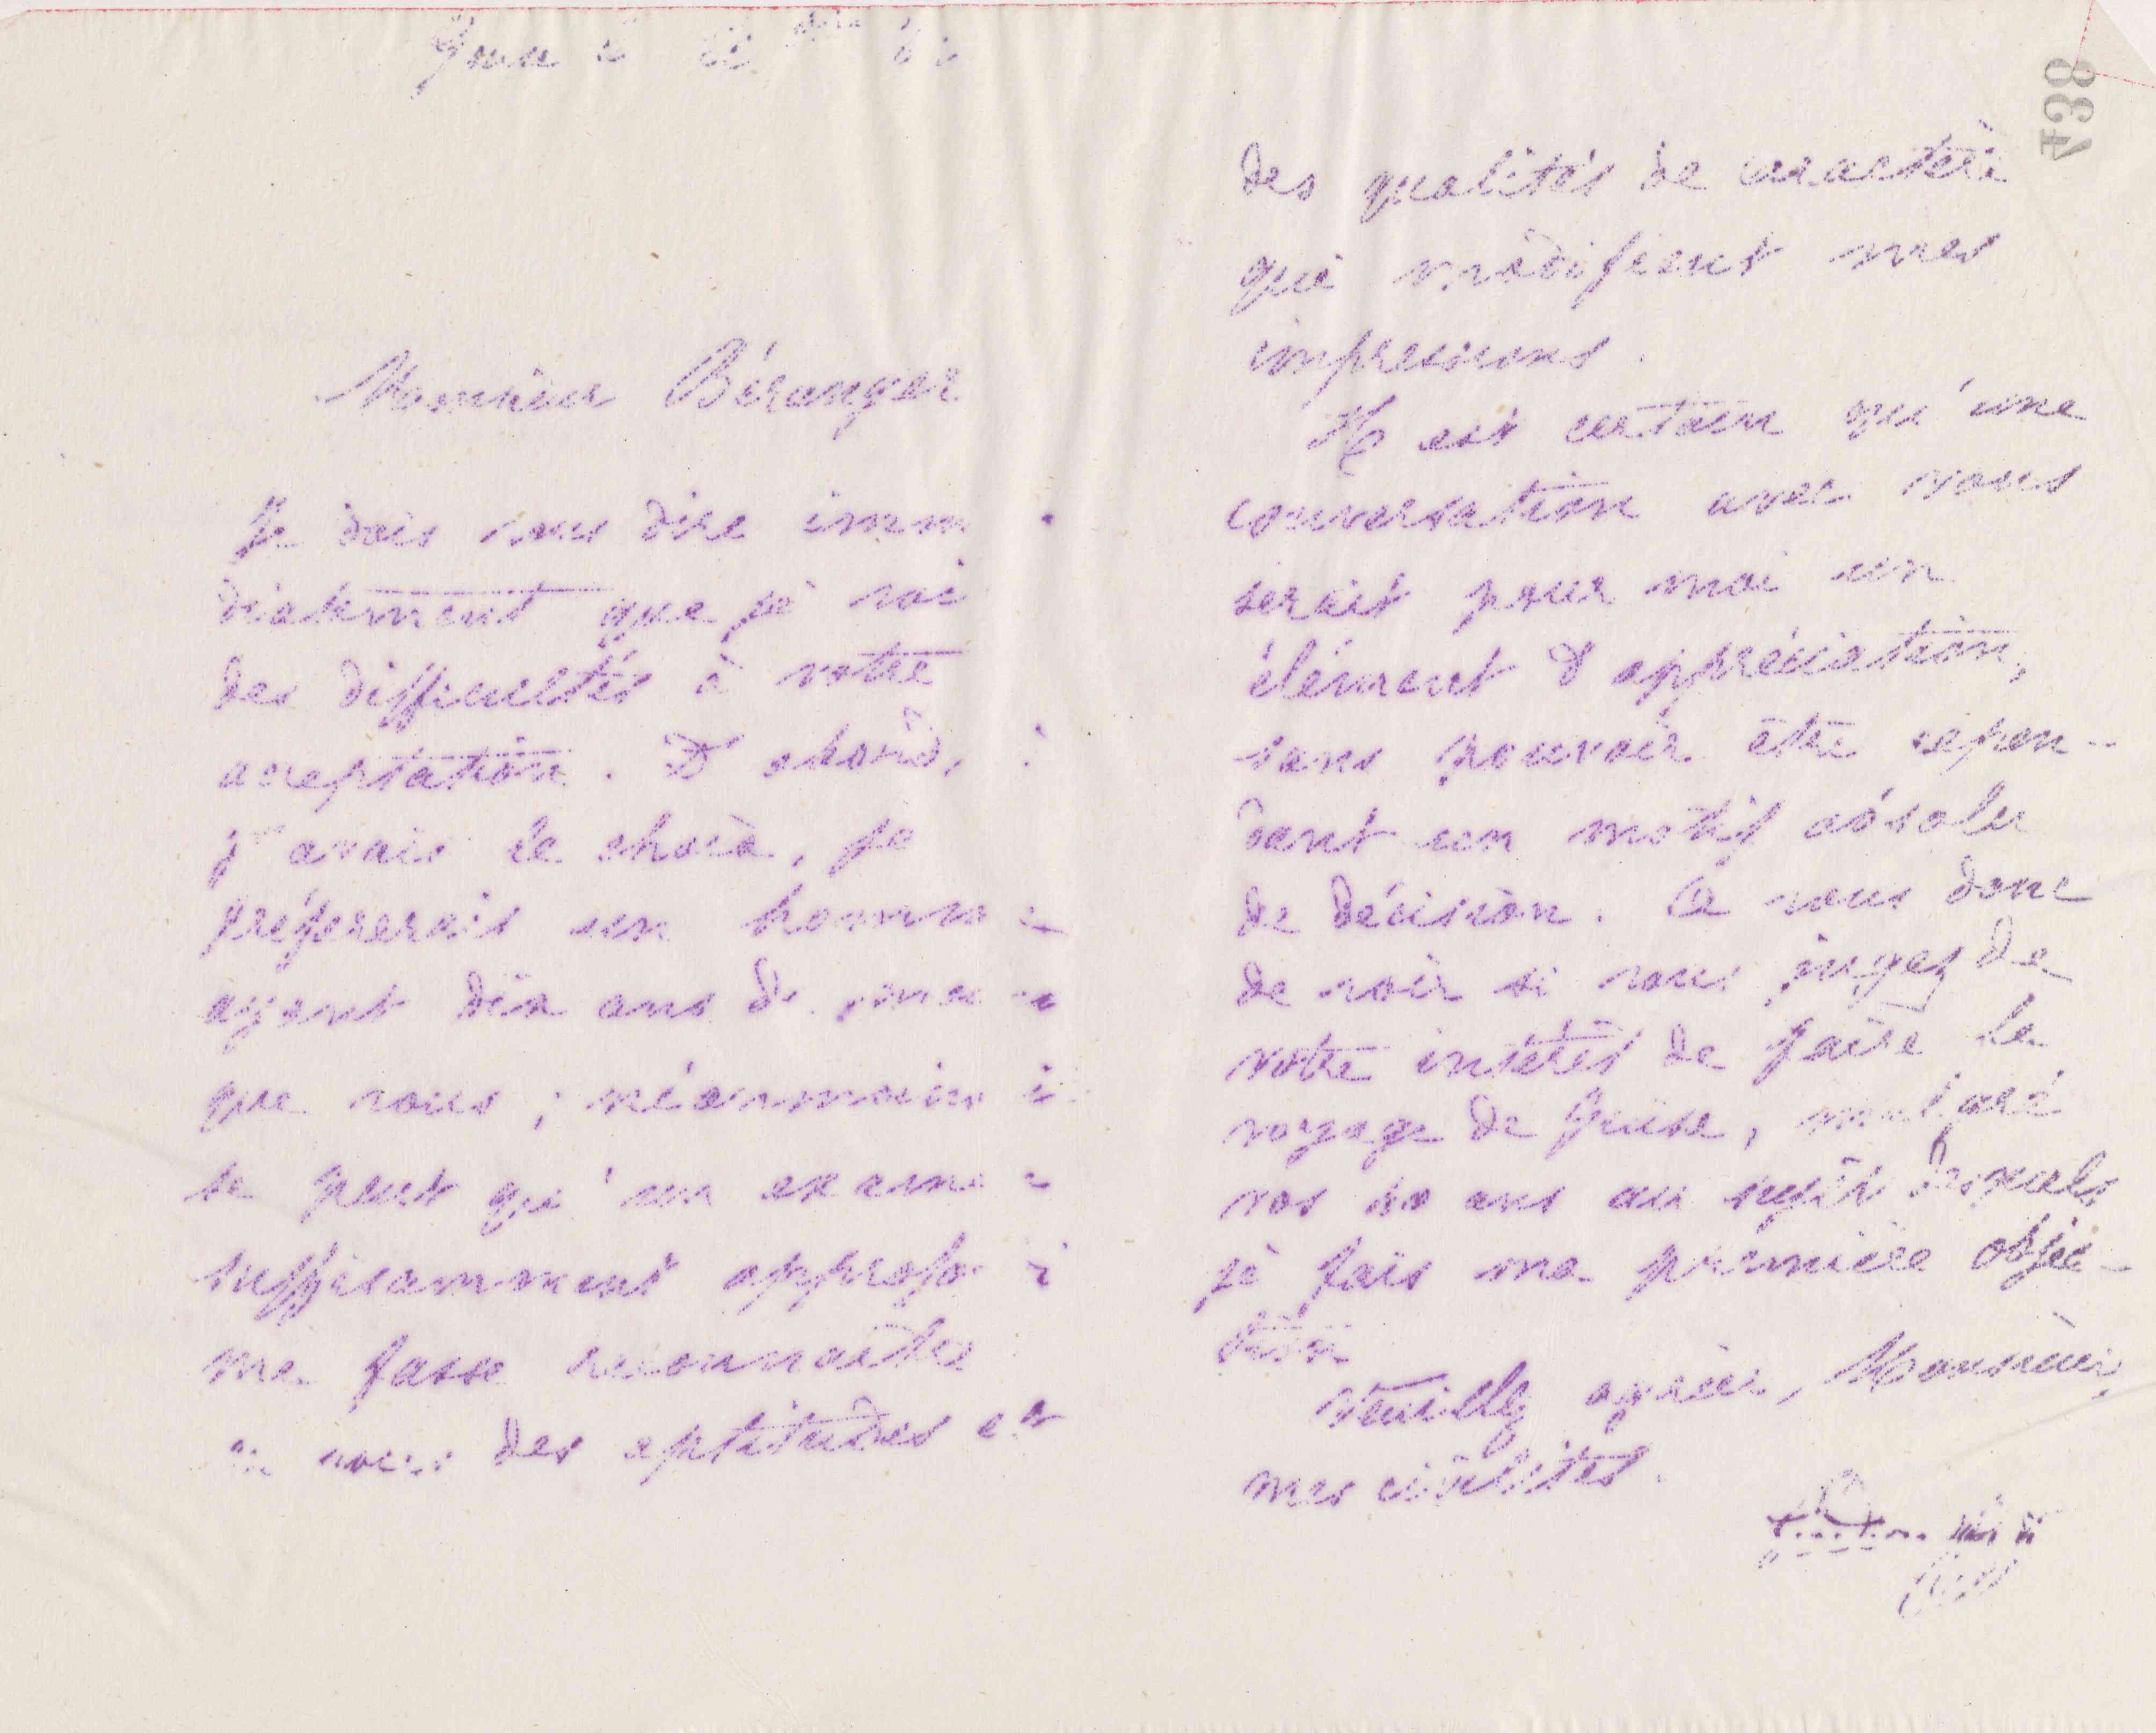 438
Monsieur Béranger
Je dois vous dire immé
diatement que je voi
des difficultés à votre
acceptation. D'abord, si
j'avais le choix, je
préfererais un homme
ayant dix ans de
que vous ; néanmoins il
se peut qu'un examen
suffisamment approfo
me fasse reconnaître
en vous des aptitudes et
des qualités de caractère
qui modifient mes
impressions.
Il est certain qu'une
conversation avec vous
serait pour moi un
élément d'appréciation,
sans pouvoir être cepen-
dant un motif absolu
de décision. A vous donc
de voir si vous jugez de
votre intérêt de faire le
voyage de Guise, malgré
vos ans au sujet desquels
je fais ma première objec-
tion
Veuillez agréer, Monsieur,
mes civilités.